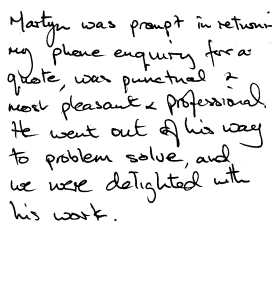 Martyn was prompt in returni
my phone enquiry for a
quote, was punctual &
most pleasant & professional.
He went out of his way
to problem solve, and
we were delighted with
his work.